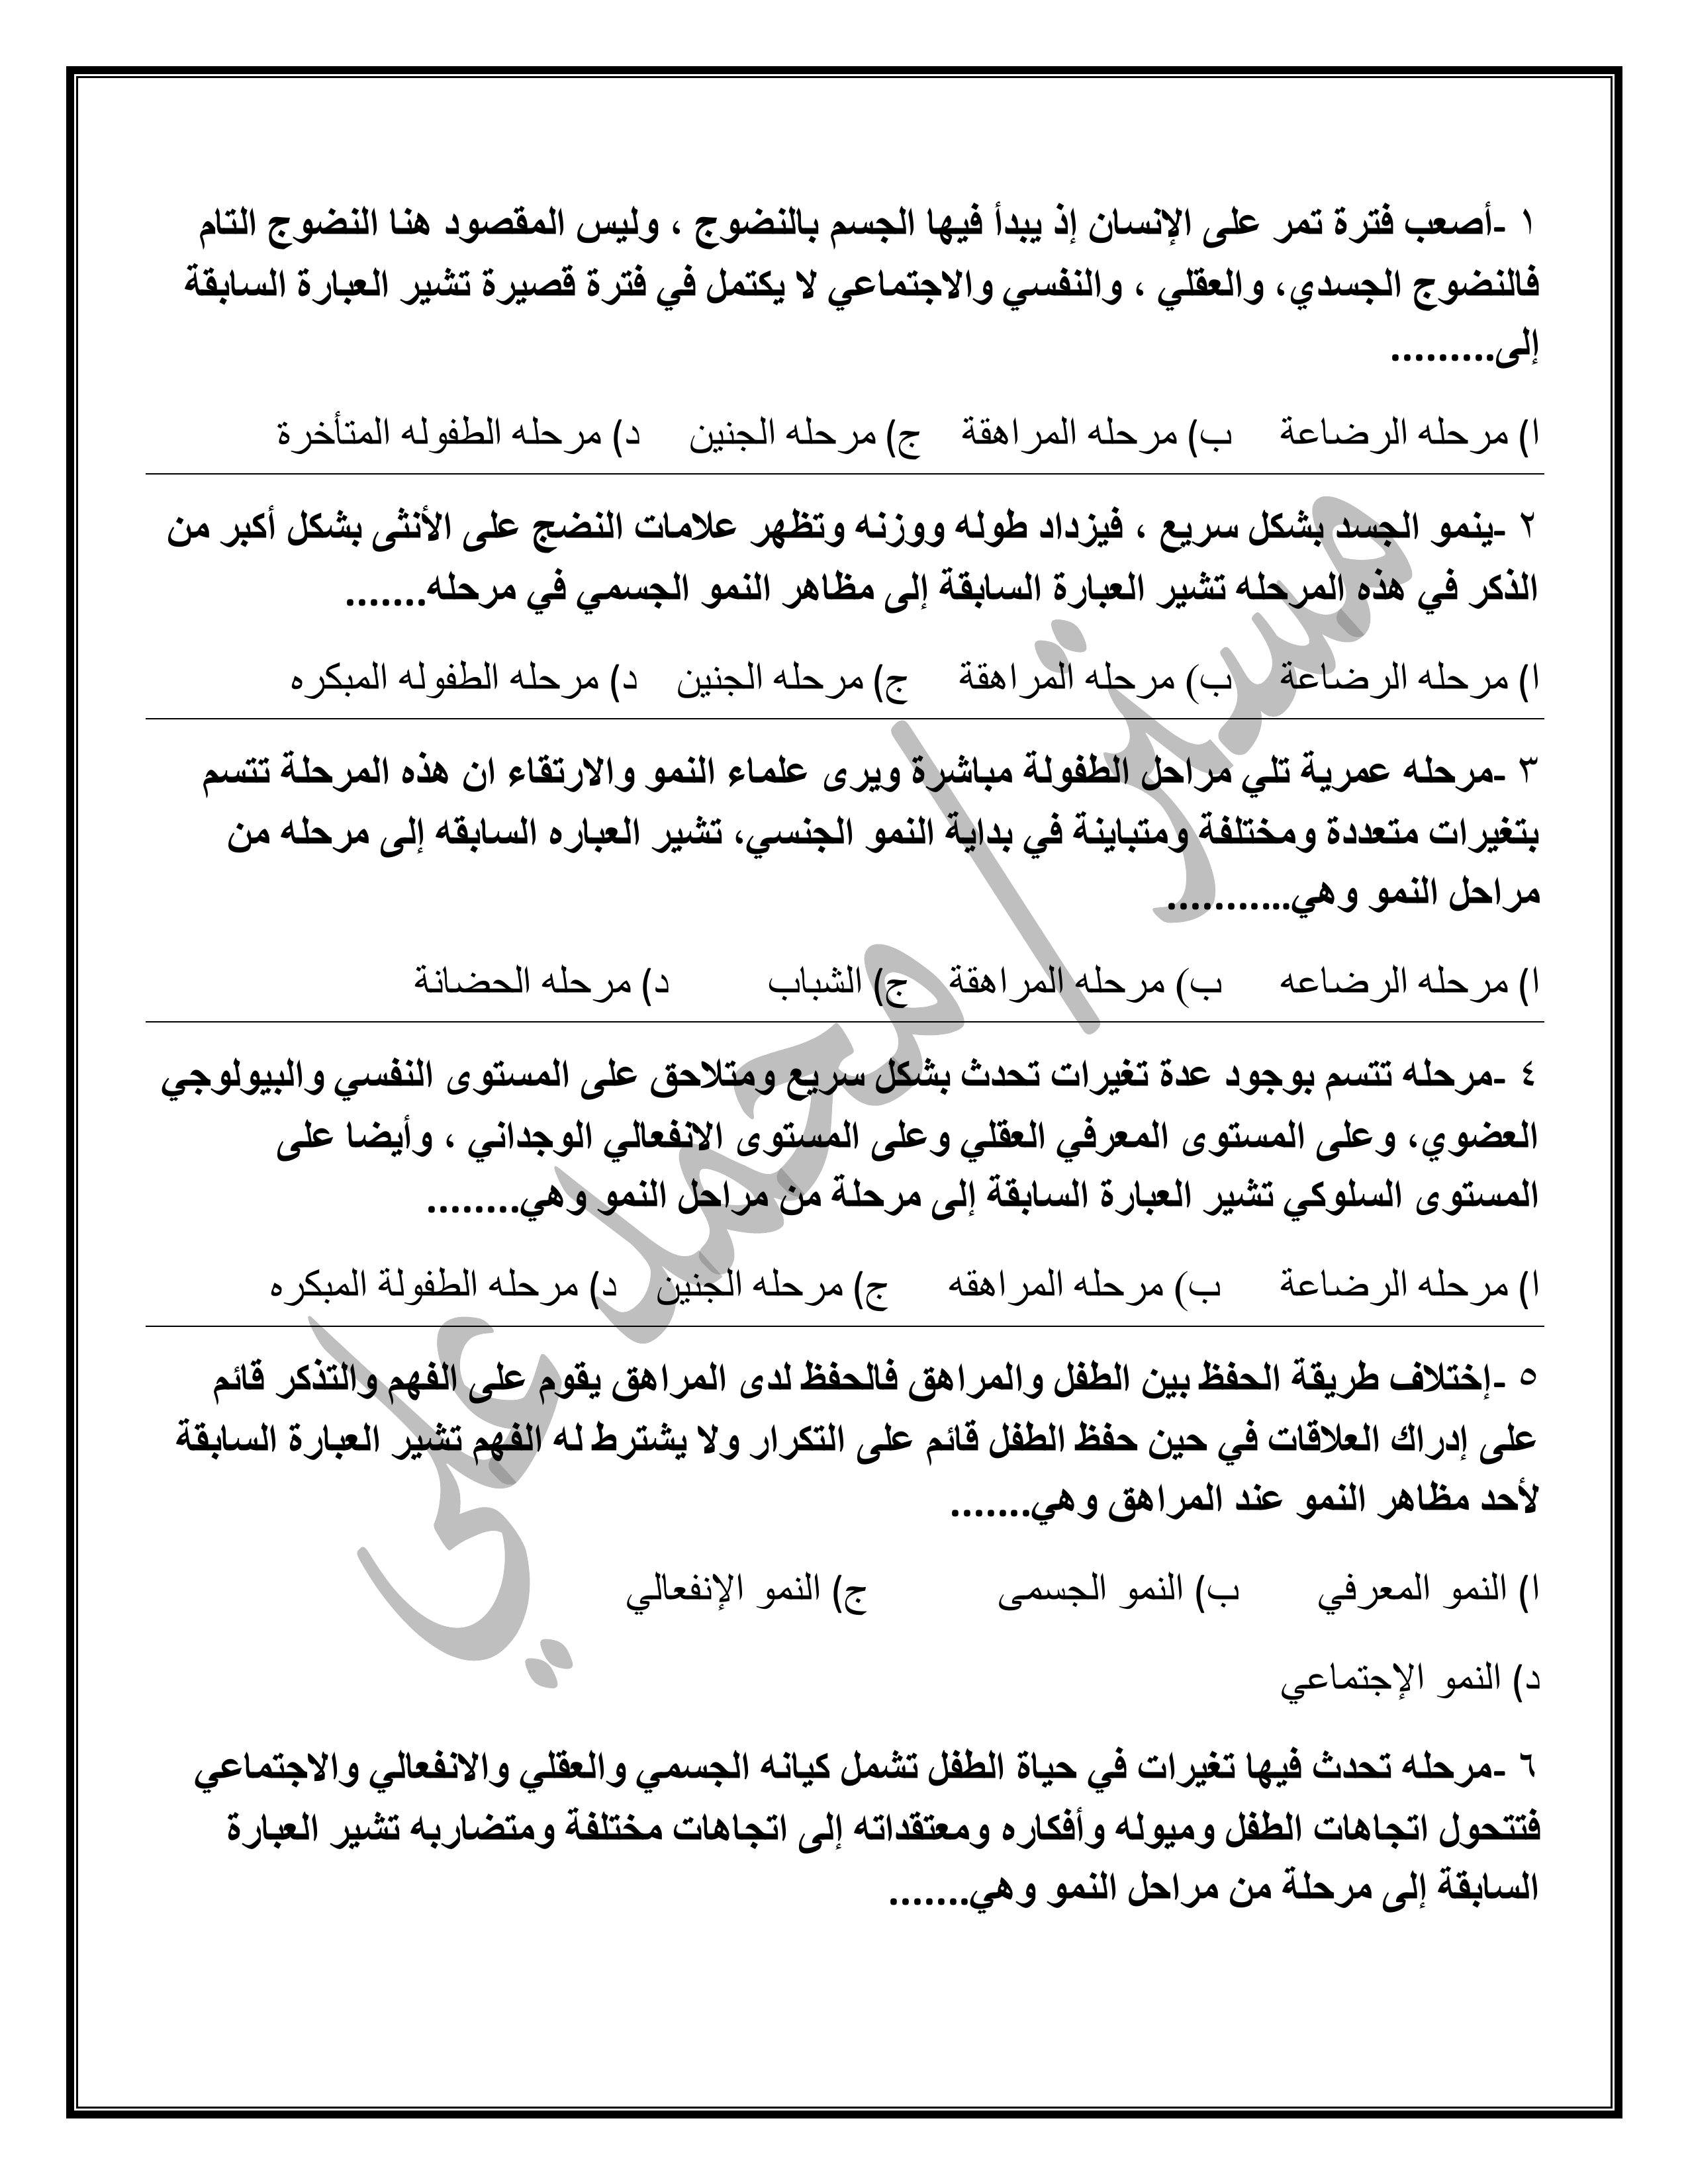 ١ -أصعب فترة تمر على الإنسان إذ يبدأ فيها الجسم بالنضوج ، وليس المقصود هنا النضوج التام
فالنضوج الجسدي، والعقلي ، والنفسي والاجتماعي لا يكتمل في فترة قصيرة تشير العبارة السابقة
إلى.........
ا) مرحله الرضاعة ب) مرحله المراهقة ج) مرحله الجنين د) مرحله الطفوله المتأخرة
٢ -ينمو الجسد بشكل سريع ، فيزداد طوله ووزنه وتظهر علامات النضج على الأنثى بشكل أكبر من
الذكر في هذه المرحله تشير العبارة السابقة إلى مظاهر النمو الجسمي في مرحله.......
ا) مرحله الرضاعة ب) مرحله المراهقة ج) مرحله الجنين د) مرحله الطفوله المبكره
٣ -مرحله عمرية تلي مراحل الطفولة مباشرة ويرى علماء النمو والارتقاء ان هذه المرحلة تتسم
بتغيرات متعددة ومختلفة ومتباينة في بداية النمو الجنسي، تشير العباره السابقه إلى مرحله من
مراحل النمو وهي...........
ا) مرحله الرضاعه ب) مرحله المراهقة ج) الشباب د) مرحله الحضانة
٤ -مرحله تتسم بوجود عدة تغيرات تحدث بشكل سريع ومتلاحق على المستوى النفسي والبيولوجي
العضوي، وعلى المستوى المعرفي العقلي وعلى المستوى الانفعالي الوجداني ، وأيضا على
المستوى السلوكي تشير العبارة السابقة إلى مرحلة من مراحل النمو وهي........
ا) مرحله الرضاعة ب) مرحله المراهقه ج) مرحله الجنين د) مرحله الطفولة المبكره
٥ -إختلاف طريقة الحفظ بين الطفل والمراهق فالحفظ لدى المراهق يقوم على الفهم والتذكر قائم
على إدراك العلاقات في حين حفظ الطفل قائم على التكرار ولا يشترط له الفهم تشير العبارة السابقة
لأحد مظاهر النمو عند المراهق وهي.......
ا) النمو المعرفي ب) النمو الجسمى ج) النمو الإنفعالي
د) النمو الإجتماعي
٦ -مرحله تحدث فيها تغيرات في حياة الطفل تشمل كيانه الجسمي والعقلي والانفعالي والاجتماعي
فتتحول اتجاهات الطفل وميوله وأفكاره ومعتقداته إلى اتجاهات مختلفة ومتضاربه تشير العبارة
السابقة إلى مرحلة من مراحل النمو وهي.......
مستر/محمد علي